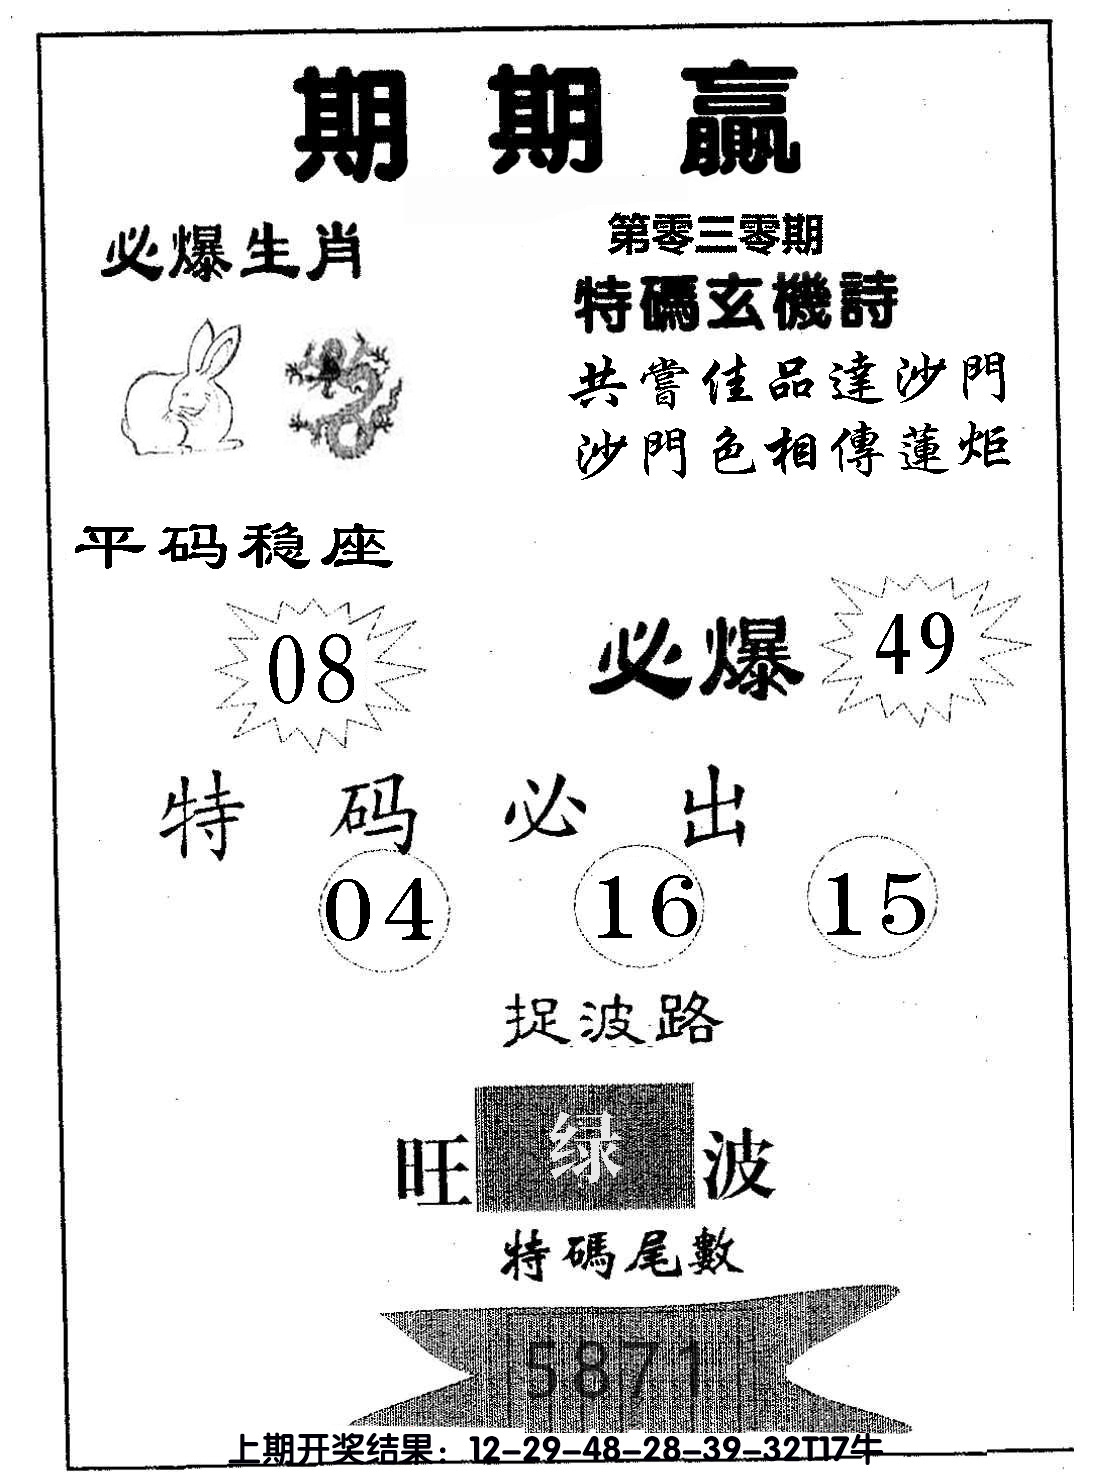 期期贏
必爆生肖
第零三零期
特碼玄機詩
共嘗佳品達沙門
沙門色相傳蓮炬
平码稳座
08
必爆
49
特码必出
04 16 15
捉波路
旺 绿 波
特碼尾數
5871
上期开奖结果：12-29-48-28-39-32T17牛